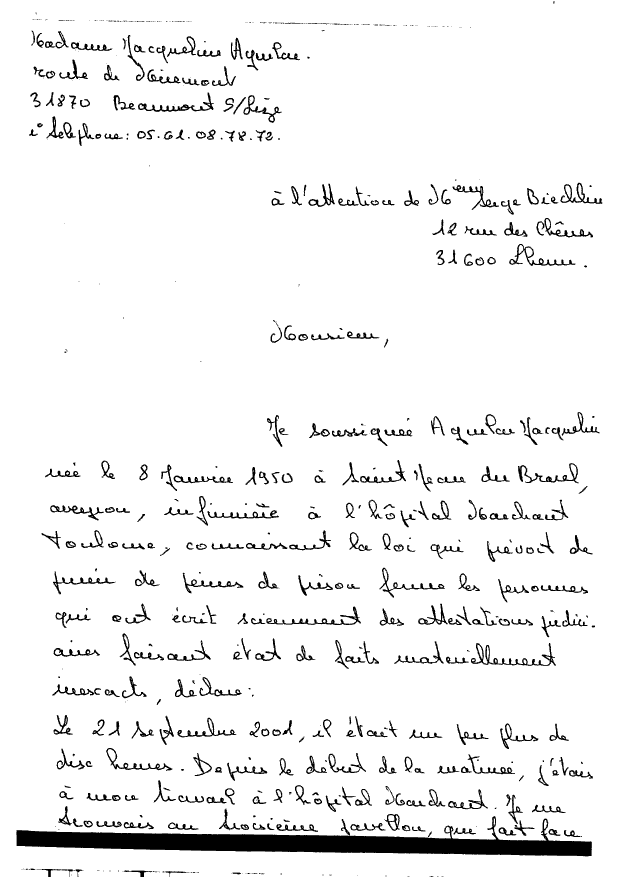 Madame Jacqueline Aguilar.
route de Miremont
31870 Beaumont S/Lèze
n° téléphone: 05.61.08.78.72.
à l'attention de M Serge Biechlin
12 rue des Chênes
31600 Lherm.
Monsieur,
Je soussignée Aguilar Jacqueline
née le 8 Janvier 1950 à Saint Jean du Bruel,
aveyron, infirmière à l'hôpital Marchant
Toulouse, connaissant la loi qui prévoit de
punir de peines de prison ferme les personnes
qui ont écrit sciemment des attestations judici-
aires faisant état de faits matériellement
inexacts, déclare:
Le 21 Septembre 2001, il était un peu plus de
dix heures. Depuis le début de la matinée, j'étais
à mon travail à l'hôpital Marchant. Je me
trouvais au troisième pavillon, qui fait face